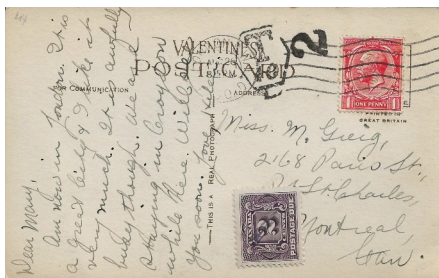 VALENTINE'S
POSTCARD
FOR COMMUNICATION
ADDRESS
THIS IS A REAL PHOTOGRAPH
PRINTED IN
GREAT BRITAIN
1 ONE PENNY 1
T
2
Dear Mary,
Am now in London. It is
a great City & I like it
very much. It is awfully
busy though. We are
staying in Croydon
while here. Will see
you soon. Love
Miss. M. Greig,
2168 Paris St.,
Pt. St. Charles,
Montreal,
Can.
CANADA
2
POSTAGE DUE